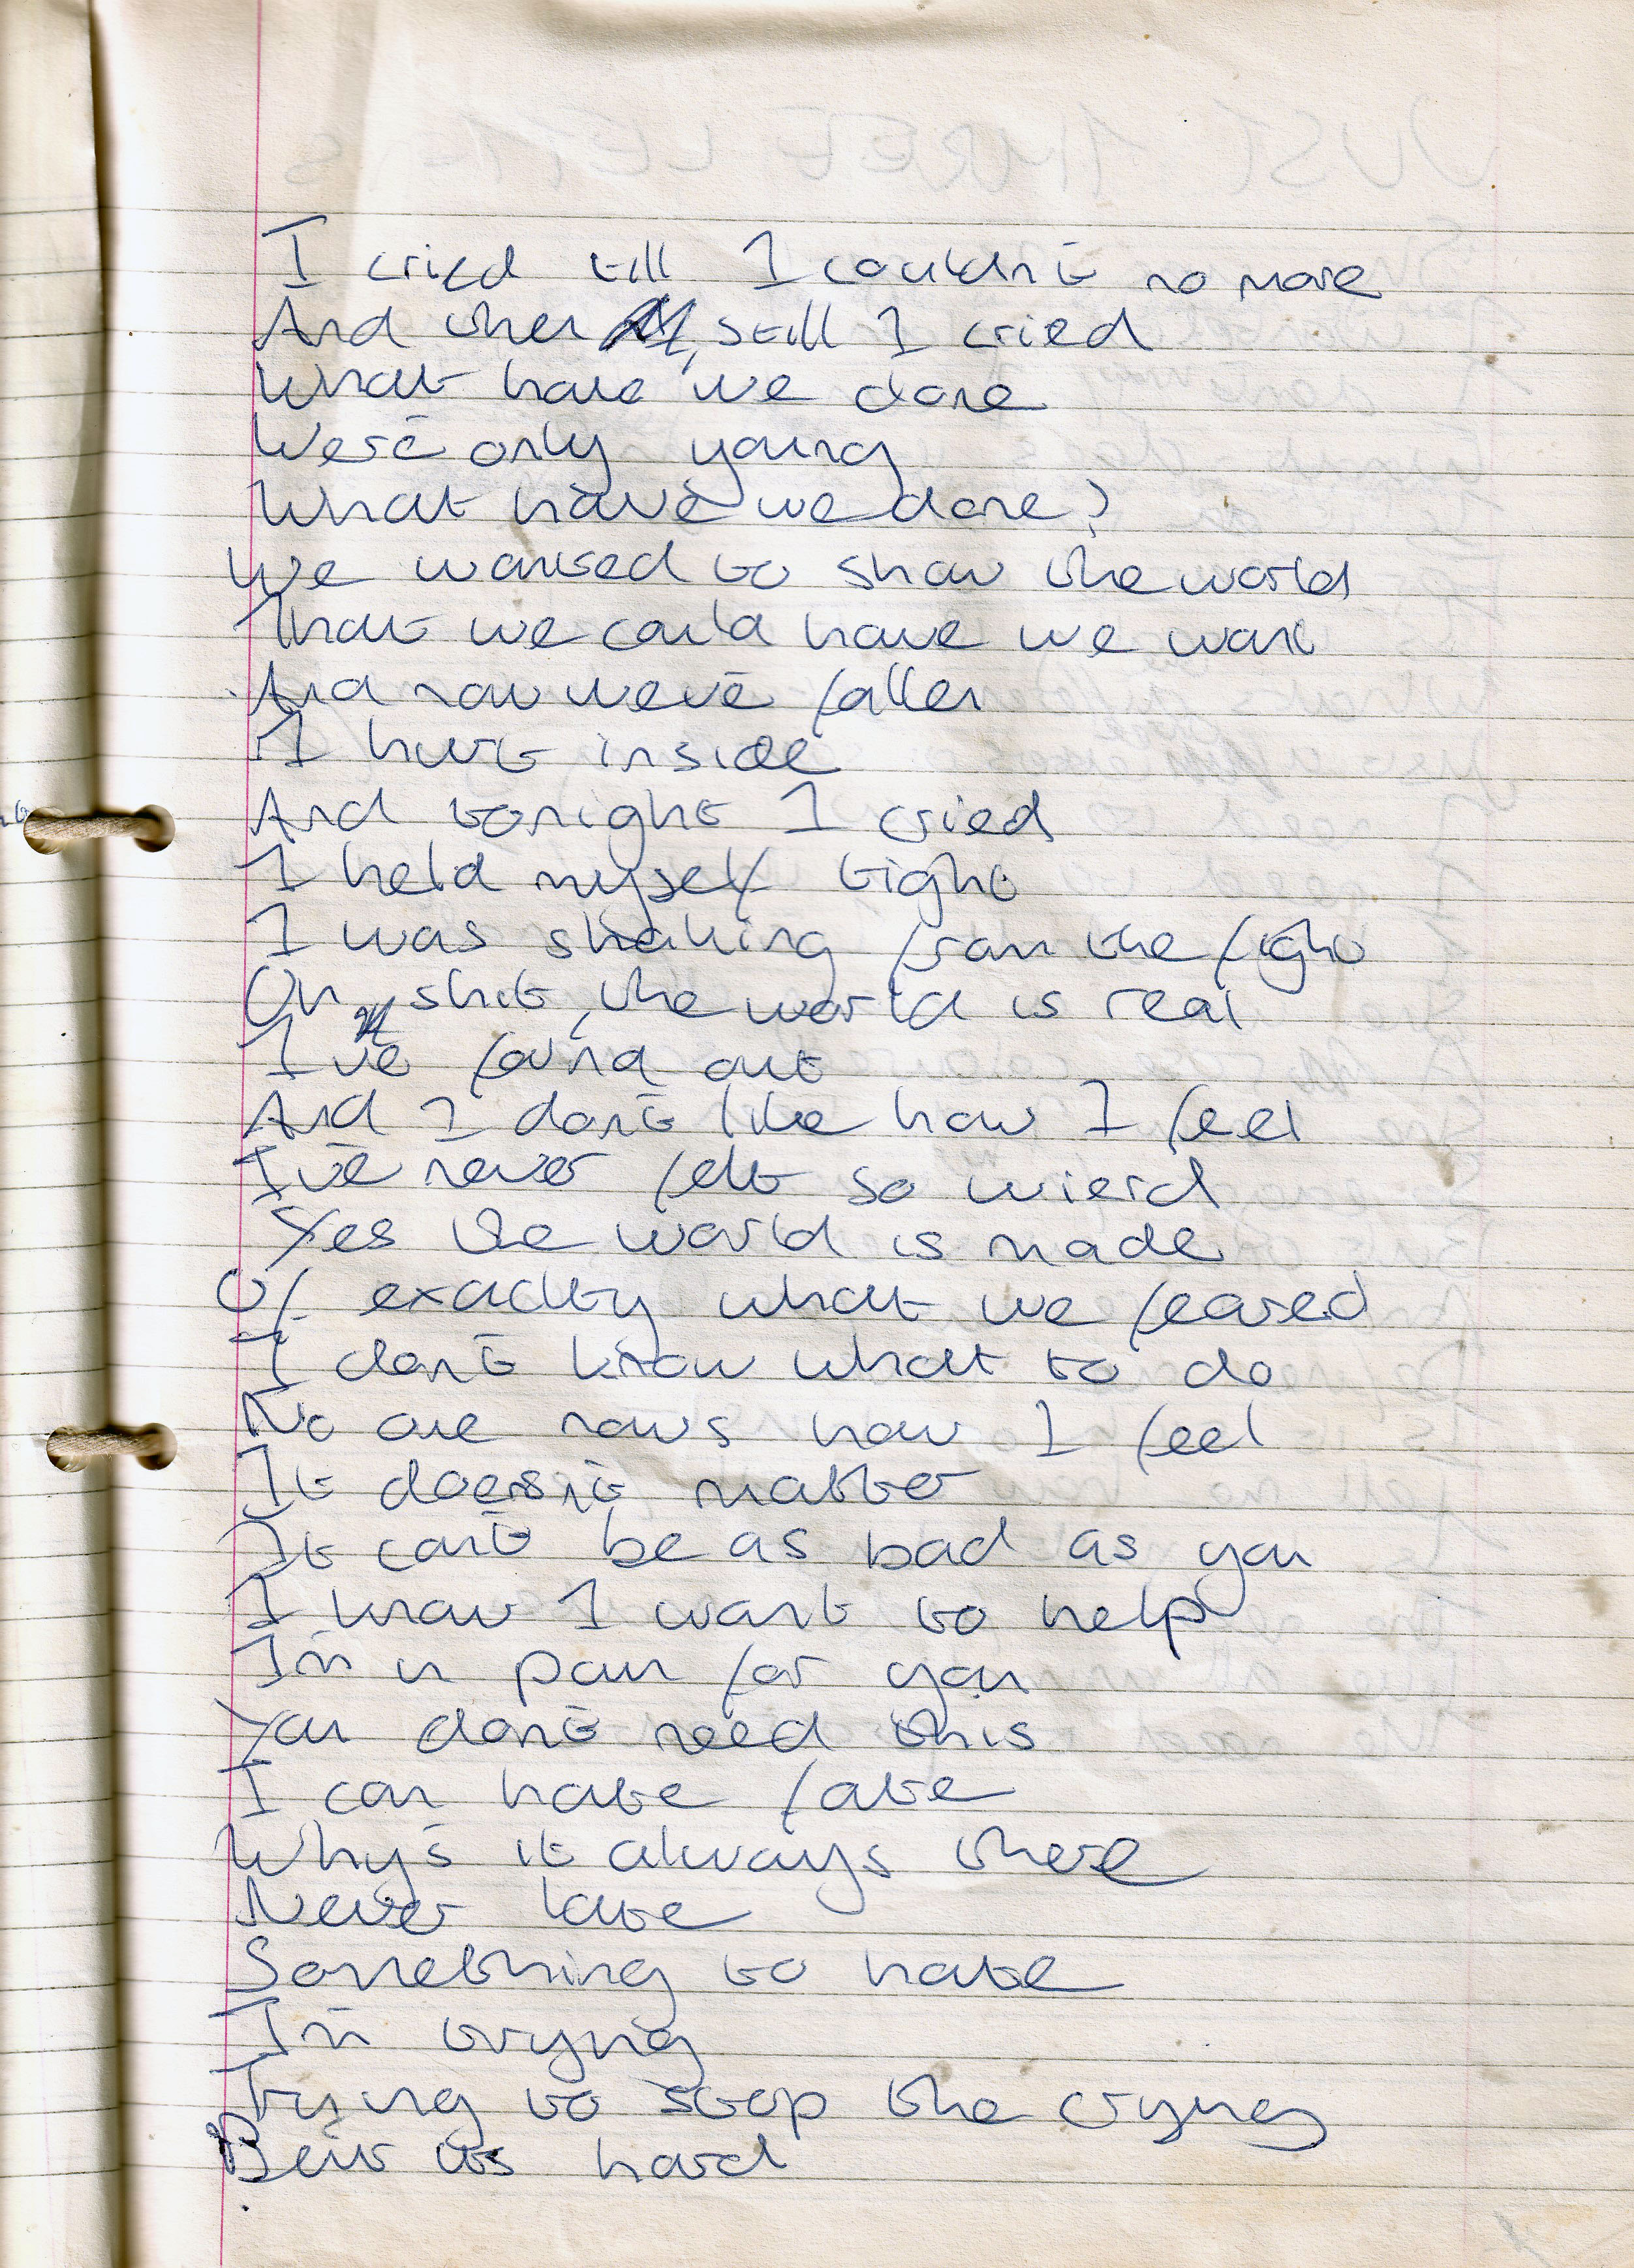 I cried till I couldn't no more
And then still I cried
What have we done
We're only young
What have we done?
We wanted to show the world
That we could have we want
And now we've fallen
I hurt inside
And tonight I cried
I held myself tight
I was shaking from the fight
Oh shit, the world is real
I've found out
And I don't like how I feel
I've never felt so wierd
Yes the world is made
Of exactly what we feared
I don't know what to do
No one nows how I feel
It doesn't matter
It can't be as bad as you
I know I want to help
I'm in pain for you
You don't need this
I can hate fate
Why's it always there
Never late
Something to hate
I'm trying
Trying to stop the crying
But its hard